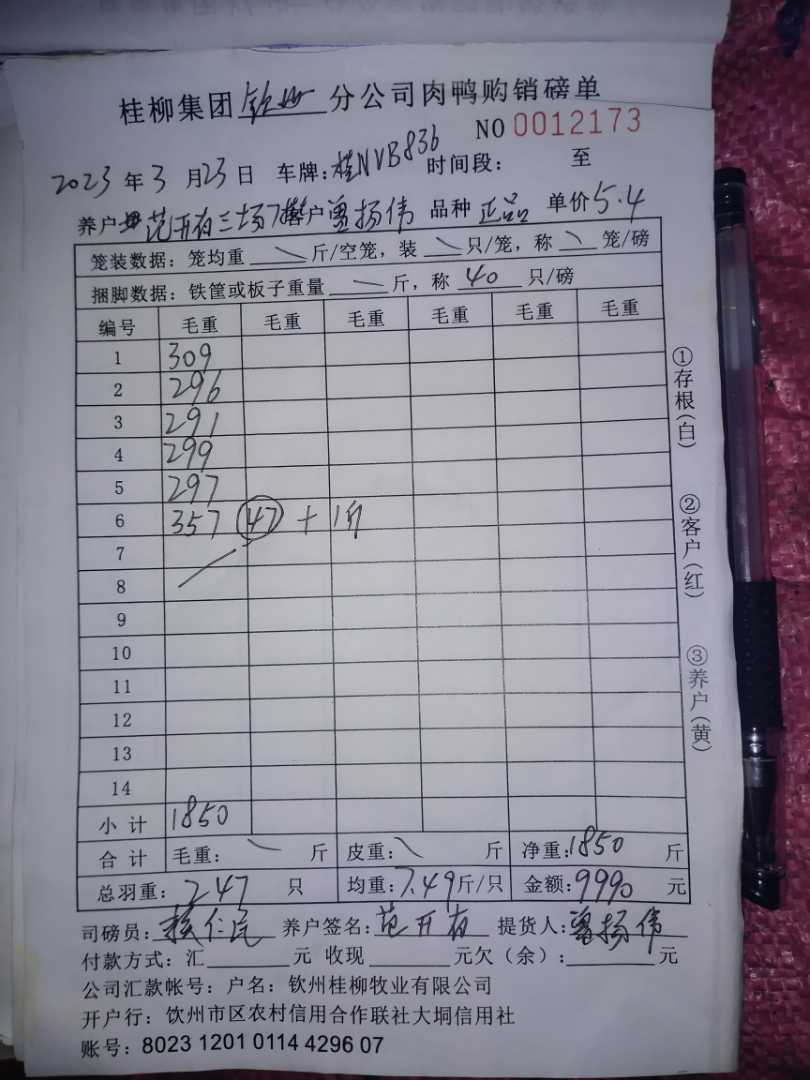 桂柳集团钦州分公司肉鸭购销磅单
NO 0012173
2023年3月23日 车牌:桂NVB836 时间段: 至
养户 范开有三场7 客户曾扬伟 品种 正品 单价5.4
笼装数据: 笼均重 \ 斤/空笼, 装 \ 只/笼, 称 \ 笼/磅
捆脚数据: 铁筐或板子重量 \ 斤, 称 40 只/磅
编号 毛重 毛重 毛重 毛重 毛重 毛重
1 309
2 296
3 291
4 299
5 297
6 357 47 + 1斤
7
8
9
10
11
12
13
14
小计 1850
合计 毛重: \ 斤 皮重: \ 斤 净重:1850 斤
总羽重: 247 只 均重:7.49斤/只 金额:9990 元
司磅员: 养户签名:范开有 提货人:曾扬伟
付款方式: 汇 元 收现 元欠(余): 元
公司汇款帐号: 户名: 钦州桂柳牧业有限公司
开户行: 钦州市区农村信用合作联社大垌信用社
账号: 8023 1201 0114 4296 07
①存根(白)
②客户(红)
③养户(黄)